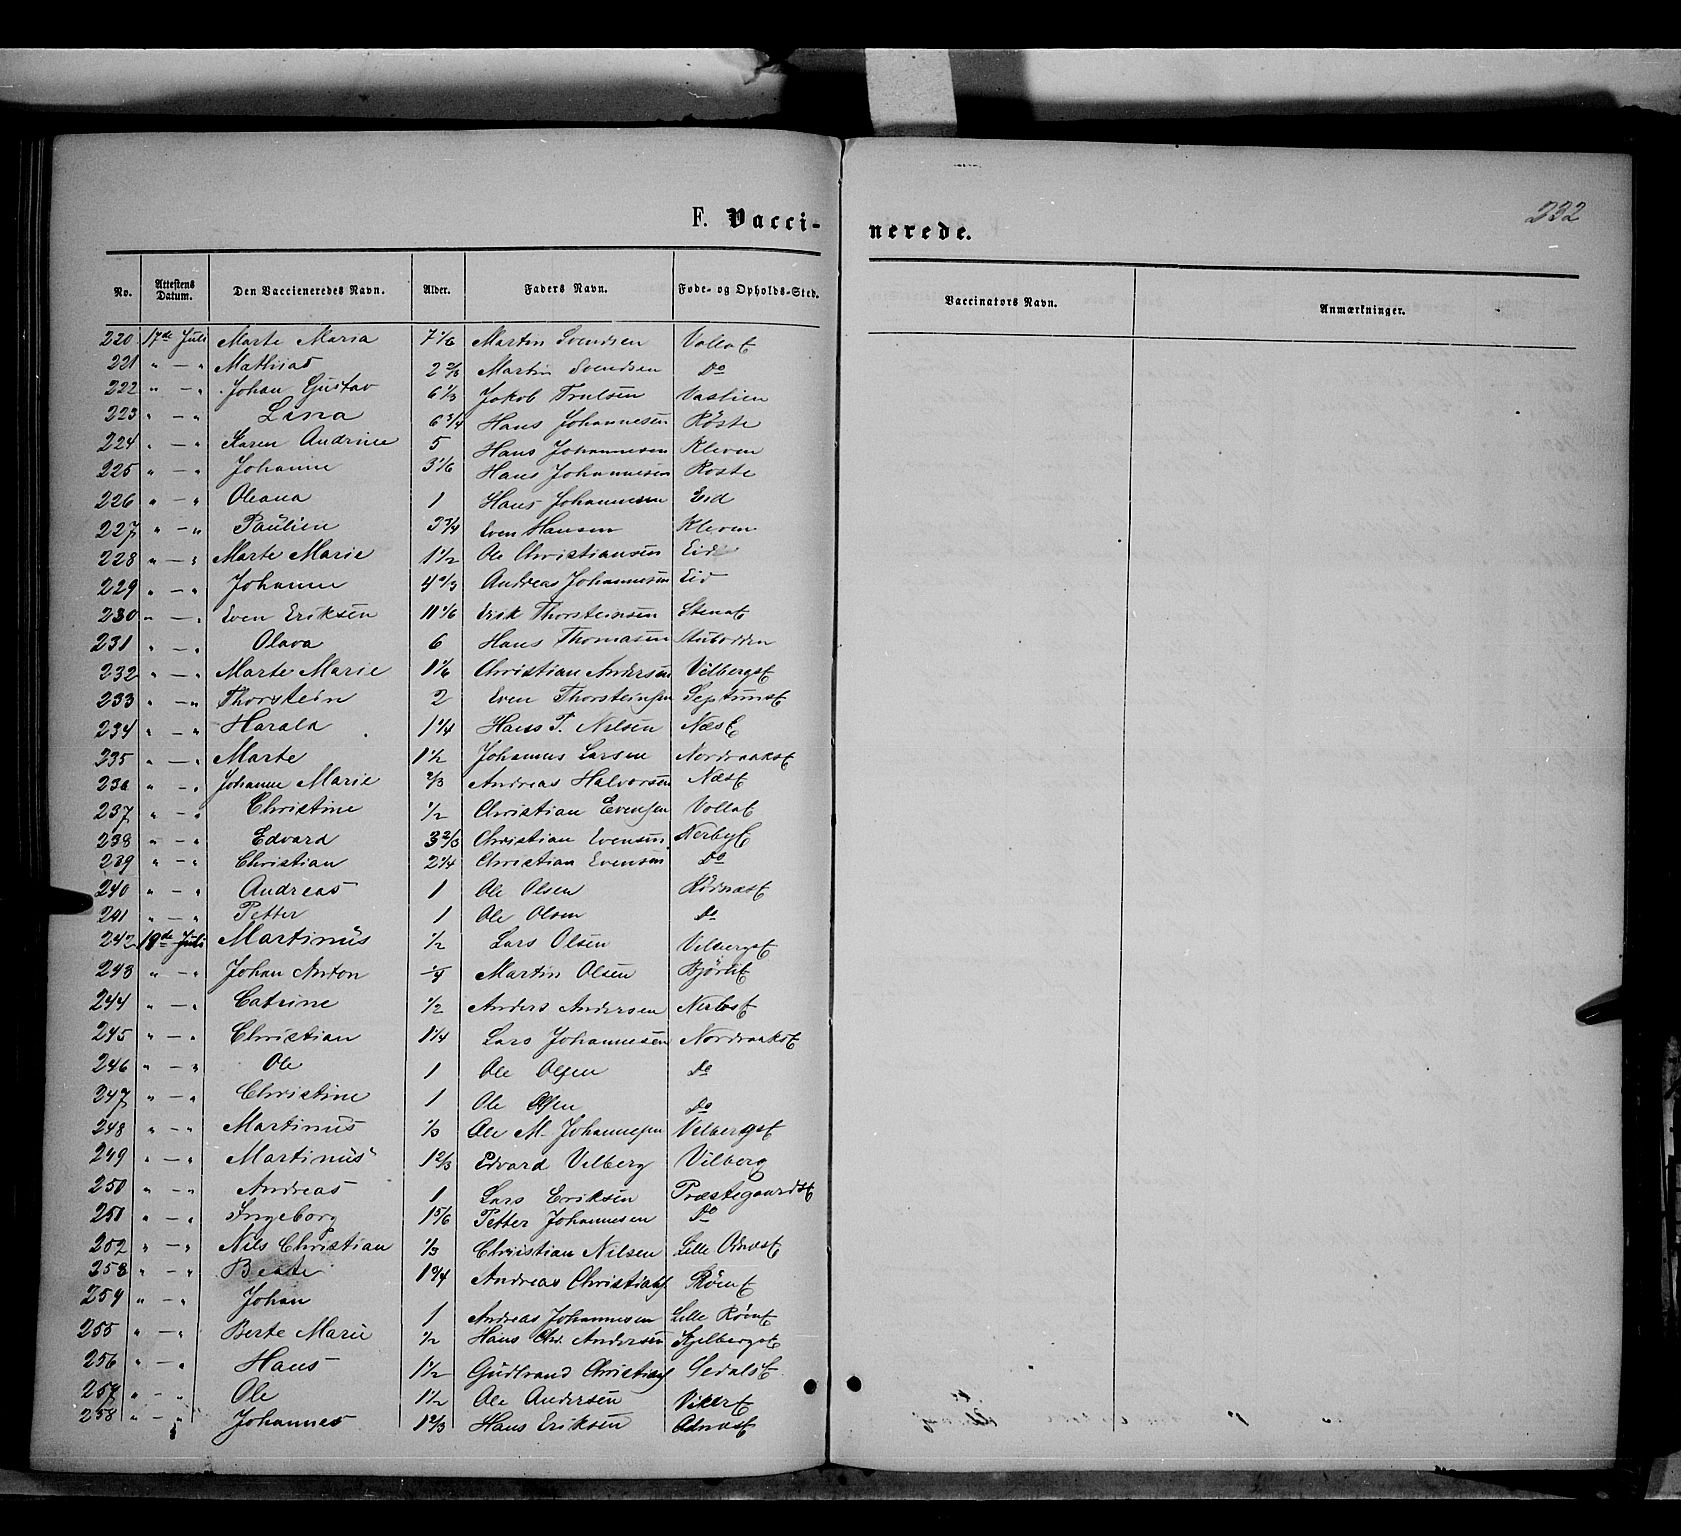 232
F. Vaccinerede.
No. | Attestens Datum. | Den Vaccieneredes Navn. | Alder. | Faders Navn. | Føde- og Opholds-Sted. | Vaccinators Navn. | Anmærkninger.
220 17de Juli Marte Maria 7 1/6 Martin Svendsen Vollat
221 " — " Mathias Martin Svendsen Do
222 " — " Johan Gustav 6 1/3 Jakob Trulsen Vastien
223 " — " Lina 6 3/4 Hans Johannesen Røste
224 " — " Karen Andrine 5 Hans Johannesen Kleven
225 " — " Johanne 3 1/6 Hans Johannesen Røste
226 " — " Oleana 1 Hans Johannesen Eid
227 " — " Paulien 3 3/4 Even Hansen Kleven
228 " — " Marte Marie 1 1/2 Ole Christiansen Eid
229 " — " Johanne 4 2/3 Andreas Johannesen Eid
230 " — " Even Eriksen 11 1/6 Erik Thorsteinsen Stenat
231 " — " Olava 6 Hans Thomasen
232 " — " Marte Marie 1 1/6 Christian Andersen Vilbergst
233 " — " Thorstein 2 Even Thorsteinsen
234 " — " Harald 1 1/4 Hans P. Nilsen Næst
235 " — " Marte 1 1/2 Johannes Larsen Nordraakst
236 " — " Johanne Marie 2/3 Andreas Halvorsen Næst
237 " — " Christine 1/2 Christian Evensen Vollat
238 " — " Edvard 3 2/3 Christian Evensen Nerbyt
239 " — " Christian 2 1/4 Christian Evensen Do
240 " — " Andreas 1 Ole Olsen
241 " — " Petter 1 Ole Olsen Do
242 18de Juli Martinus 1/2 Lars Olsen Vilbergst
243 " — " Johan Anton Martin Olsen
244 " — " Catrine 1/2 Anders Andersen
245 " — " Christian 1 1/4 Lars Johannesen Nordraakst
246 " — " Ole 1 Ole Olsen Do
247 " — " Christine 1 Ole Olsen Do
248 " — " Martinus 1/3 Ole M. Johannesen Vilbergst
249 " — " Martinus 1 2/3 Edvard Vilberg Vilberg
250 " — " Andreas 1 Lars Eriksen Præstegaardst
250 " — " Ingeborg 1 5/6 Petter Johannesen Do
252 " — " Nils Christian 1/3 Christian Nilsen Lille Odnæst
253 " — " Beate 1 3/4 Andreas Christians Rønt
254 " — " Johan 1 Andreas Johannesen Lille Rønt
255 " — " Berte Marie 1/2 Hans Chr. Andersen Kjelbergst
256 " — " Hans 1 1/2 Gudbrand Christians Sedalst
257 " — " Ole 1 1/2 Ole Andersen Vikert
258 " — " Johannes 1 2/3 Hans Eriksen Odnæst